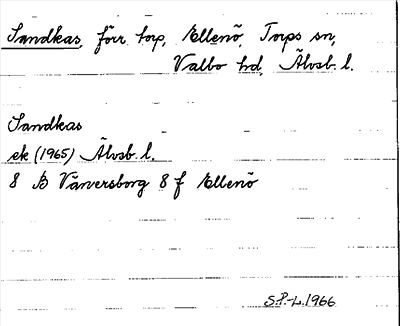 Sandkas, förr torp, Ellenö, Torps sn,
Valbo hd, Älvsb. l.
Sandkas
ek (1965) Älvsb. l.
8 B Vänersborg 8 f Ellenö
S.P.-L. 1966